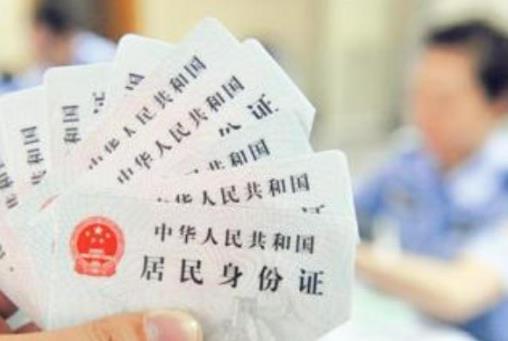 和国
民共和国
和国
份证
中华人民共和国
中华人民共和国
和国
中华人民共和国
中华人民共和国
居民身份证